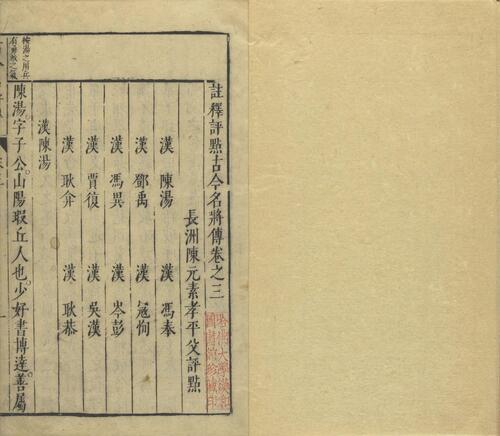 註釋評點古今名將傳卷之三
長洲陳元素孝平父評點
漢 陳湯 漢 馮奉
漢 鄧禹 漢 寇恂
漢 馮異 漢 岑彭
漢 賈復 漢 吳漢
漢 耿弇 漢 耿恭
漢陳湯
陳湯字子公。山陽瑕丘人也。少好書博達。善屬
按湯之用兵
哈佛大學漢和
圖書館珍藏印